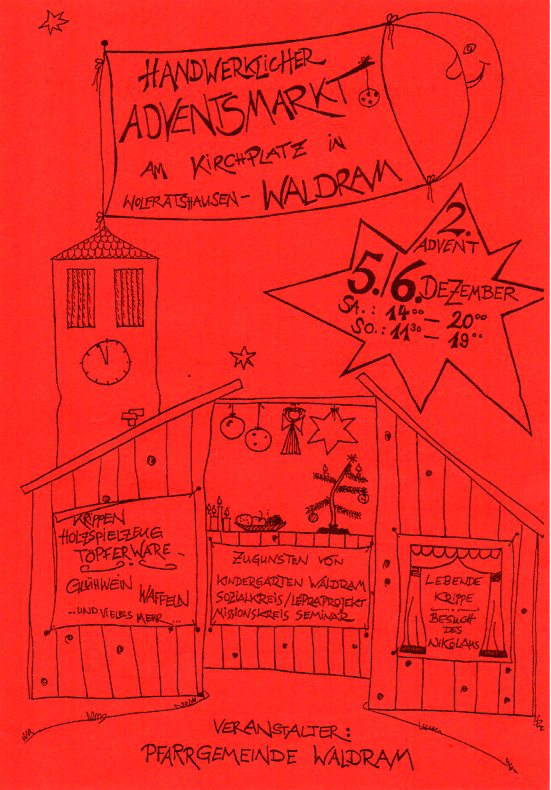 HANDWERKLICHER
ADVENTSMARKT
AM KIRCHPLATZ IN
WOLFRATSHAUSEN - WALDRAM
2.
ADVENT
5./6. DEZEMBER
SA.: 14⁰⁰ - 20⁰⁰
SO.: 11³⁰ - 19⁰⁰
KRIPPEN
HOLZSPIELZEUG
TÖPFERWARE
GLÜHWEIN WAFFELN
... UND VIELES MEHR ...
ZUGUNSTEN VON
KINDERGARTEN WALDRAM
SOZIALKREIS/LEPRAPROJEKT
MISSIONSKREIS SEMINAR
LEBENDE
KRIPPE
BESUCH
DES
NIKOLAUS
VERANSTALTER:
PFARRGEMEINDE WALDRAM